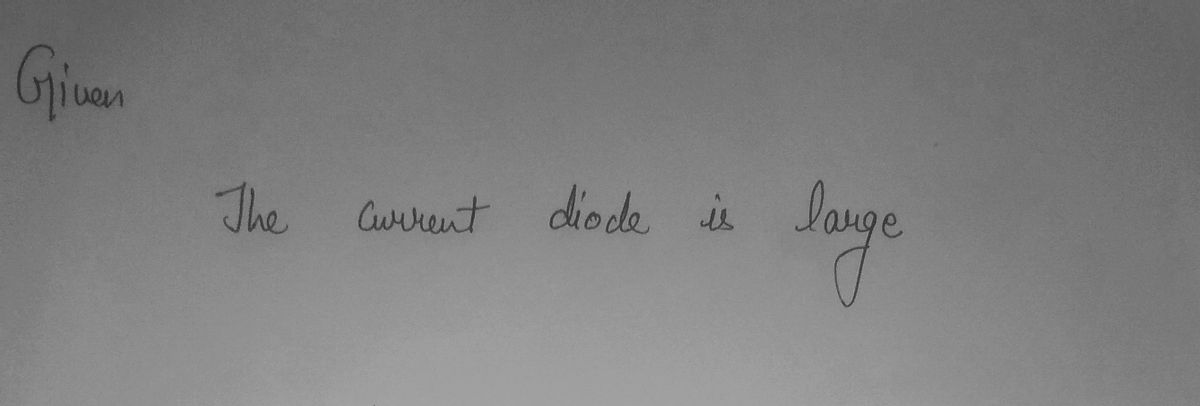 Given
The current diode is large